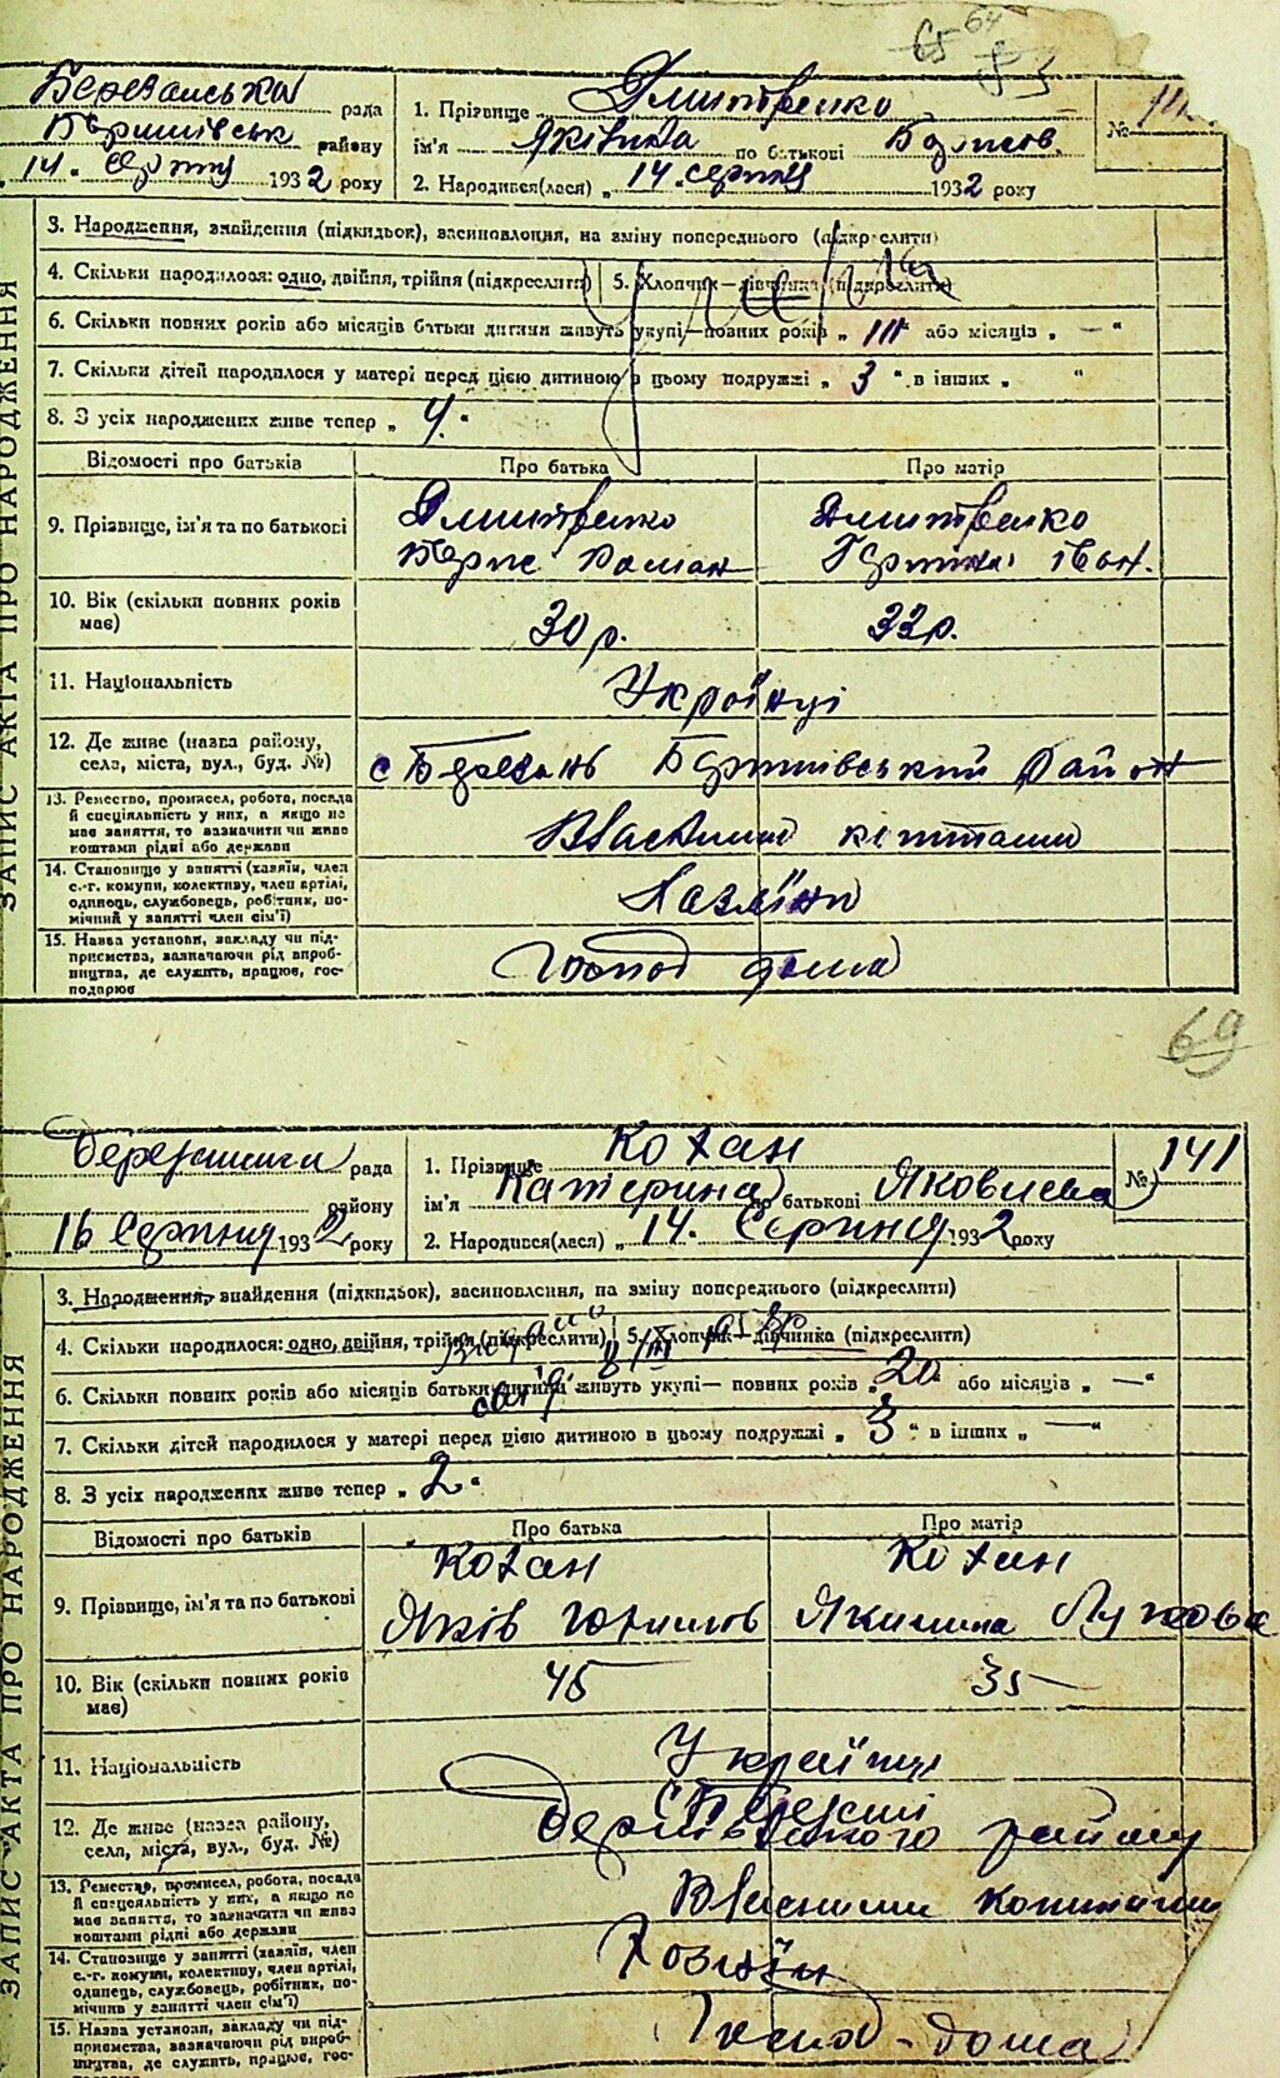 65 64
Березанська рада
Баришівськ району
14 серпня 1932 року
1. Прізвище Дмитренко
ім'я по батькові Борисов.
2. Народився(лася) „ 14 " серпня 1932 року
№
ЗАПИС АКТА ПРО НАРОДЖЕННЯ
3. Народження, знайдення (підкидьок), засиновлення, на зміну попереднього (підкреслити)
4. Скільки народилося: одно, двійня, трійня (підкреслити) 5. Хлопчик—дівчинка (підкреслити)
6. Скільки повних років або місяців батьки дитини живуть укупі—повних років „ " або місяців „ — "
7. Скільки дітей народилося у матері перед цією дитиною в цьому подружжі „ 3 " в інших „ "
8. З усіх народжених живе тепер „ 4 "
Відомості про батьків Про батька Про матір
9. Прізвище, ім'я та по батькові
Дмитренко Дмитренко
Борис Роман Іван.
10. Вік (скільки повних років має)
30 р. 32 р.
11. Національність Українці
12. Де живе (назва району, села, міста, вул., буд. №)
с Березань Баришівський район
13. Ремество, промисел, робота, посада
й спеціяльність у них, а якщо не
має заняття, то зазначити чи живе
коштами рідні або держави
Власними коштами
14. Становище у занятті (хазяїн, член
с.-г. комуни, колективу, член артілі,
одинець, службовець, робітник, по-
мічний у занятті член сім'ї)
Хазяїни
15. Назва установи, закладу чи під-
приємства, зазначаючи рід вироб-
ництва, де служить, працює, гос-
подарює
Господ дома
69
рада
району
16 Серпня 1932 року
1. Прізвище Кохан
ім'я Катерина по батькові Яковлевна
2. Народився(лася) „ 14. Серпня 1932 року
№ 141
ЗАПИС АКТА ПРО НАРОДЖЕННЯ
3. Народження, знайдення (підкидьок), засиновлення, на зміну попереднього (підкреслити)
4. Скільки народилося: одно, двійня, трійня (підкреслити) 5. Хлопчик—дівчинка (підкреслити)
6. Скільки повних років або місяців батьки дитини живуть укупі— повних років „ 20 " або місяців „ — "
7. Скільки дітей народилося у матері перед цією дитиною в цьому подружжі „ 3 " в інших „ — "
8. З усіх народжених живе тепер „ 2 "
Відомості про батьків Про батька Про матір
9. Прізвище, ім'я та по батькові
Кохан Кохан
Яків Юхимов Якилина
10. Вік (скільки повних років має)
45 35
11. Національність Українці
12. Де живе (назва району, села, міста, вул., буд. №)
с Березані
району
13. Ремество, промисел, робота, посада
й спеціяльність у них, а якщо не
має заняття, то зазначити чи живе
коштами рідні або держави
Власними коштами
14. Становище у занятті (хазяїн, член
с.-г. комуни, колективу, член артілі,
одинець, службовець, робітник, по-
мічний у занятті член сім'ї)
Хозяїн
15. Назва установи, закладу чи під-
приємства, зазначаючи рід вироб-
ництва, де служить, працює, гос-
Господ - дома